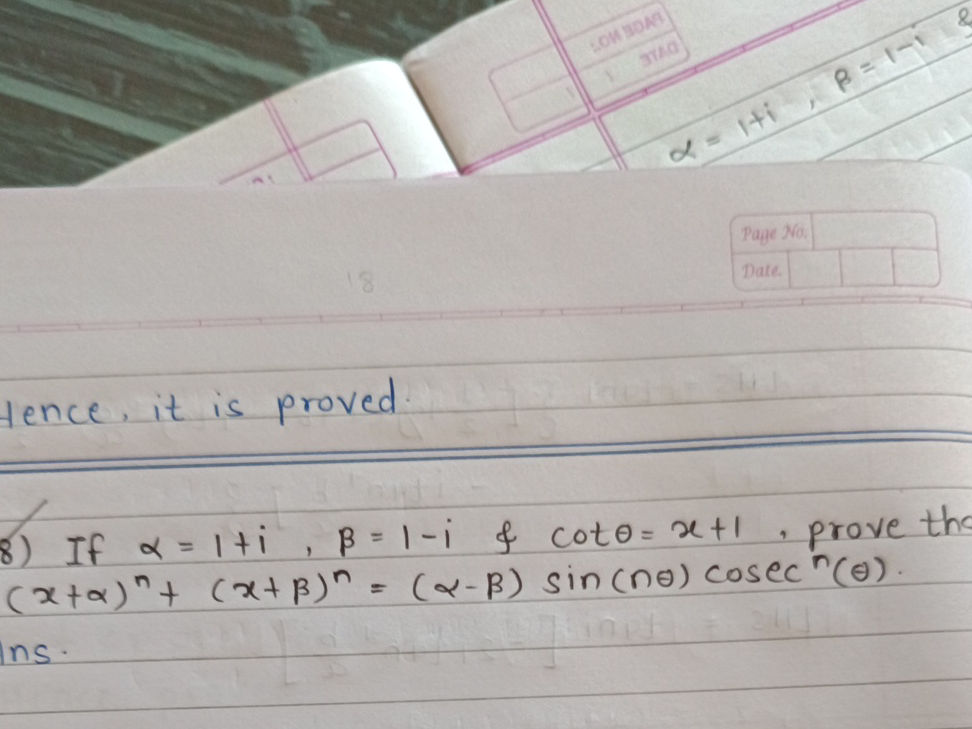 PAGE NO.:
DATE
α = 1+i , β = 1-i &
Page No.
Date.
18
Hence, it is proved.
8) If α = 1+i , β = 1-i & cotθ = x+1 , prove tha
(x+α)ⁿ + (x+β)ⁿ = (α-β) sin(nθ) cosecⁿ(θ).
Ans.